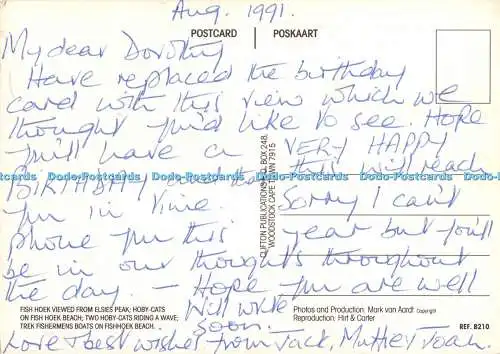 Aug. 1991.
POSTCARD POSKAART
My dear Dorothy
Have replaced the birthday
card with this view which we
thought you'd like to see. Hope
you'll have a VERY HAPPY
BIRTHDAY that this will reach
Dodo-Postcards Dodo-Postcards Dodo-Postcards Dodo-Postcards Dodo-Postcards
you in time. Sorry I can't
phone you this year but you'll
be in our thoughts throughout
the day - Hope you are well
Will write
soon.
Love & best wishes from Jack, Muttley Joan.
CLIFTON PUBLICATIONS P.O. BOX 248,
WOODSTOCK CAPE TOWN 7915
FISH HOEK VIEWED FROM ELSIES PEAK; HOBY-CATS
ON FISH HOEK BEACH; TWO HOBY-CATS RIDING A WAVE;
TREK FISHERMENS BOATS ON FISHHOEK BEACH.
Photos and Production: Mark van Aardt Copyright
Reproduction: Hirt & Carter
REF. 8210